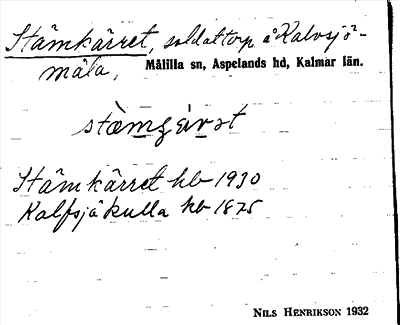 Stämkärret, soldattorp å Kalvsjö-
måla,
Målilla sn, Aspelands hd, Kalmar län.
Stämkärret hb 1930
Kalfsjökulla hb 1875
NILS HENRIKSON 1932